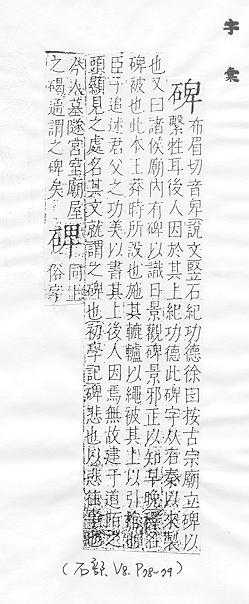 字彙
碑 布眉切音卑說文豎石紀功德徐曰按古宗廟立碑以
繫牲耳後人因於其上紀功德此碑字从石秦以來製
也又曰諸侯廟內有碑以識日景觀碑景邪正以知早晚釋
碑被也此本王莽時所設也施其轆轤以繩被其上以引棺也
臣子追述君父之功美以書其上後人因焉無故建于道陌之
頭顯見之處名其文就謂之碑也初學記碑悲也以悲往事也
今人墓隧宮室廟屋
之碣通謂之碑矣
碑 同上
俗字
(石部. V8. P28~29)